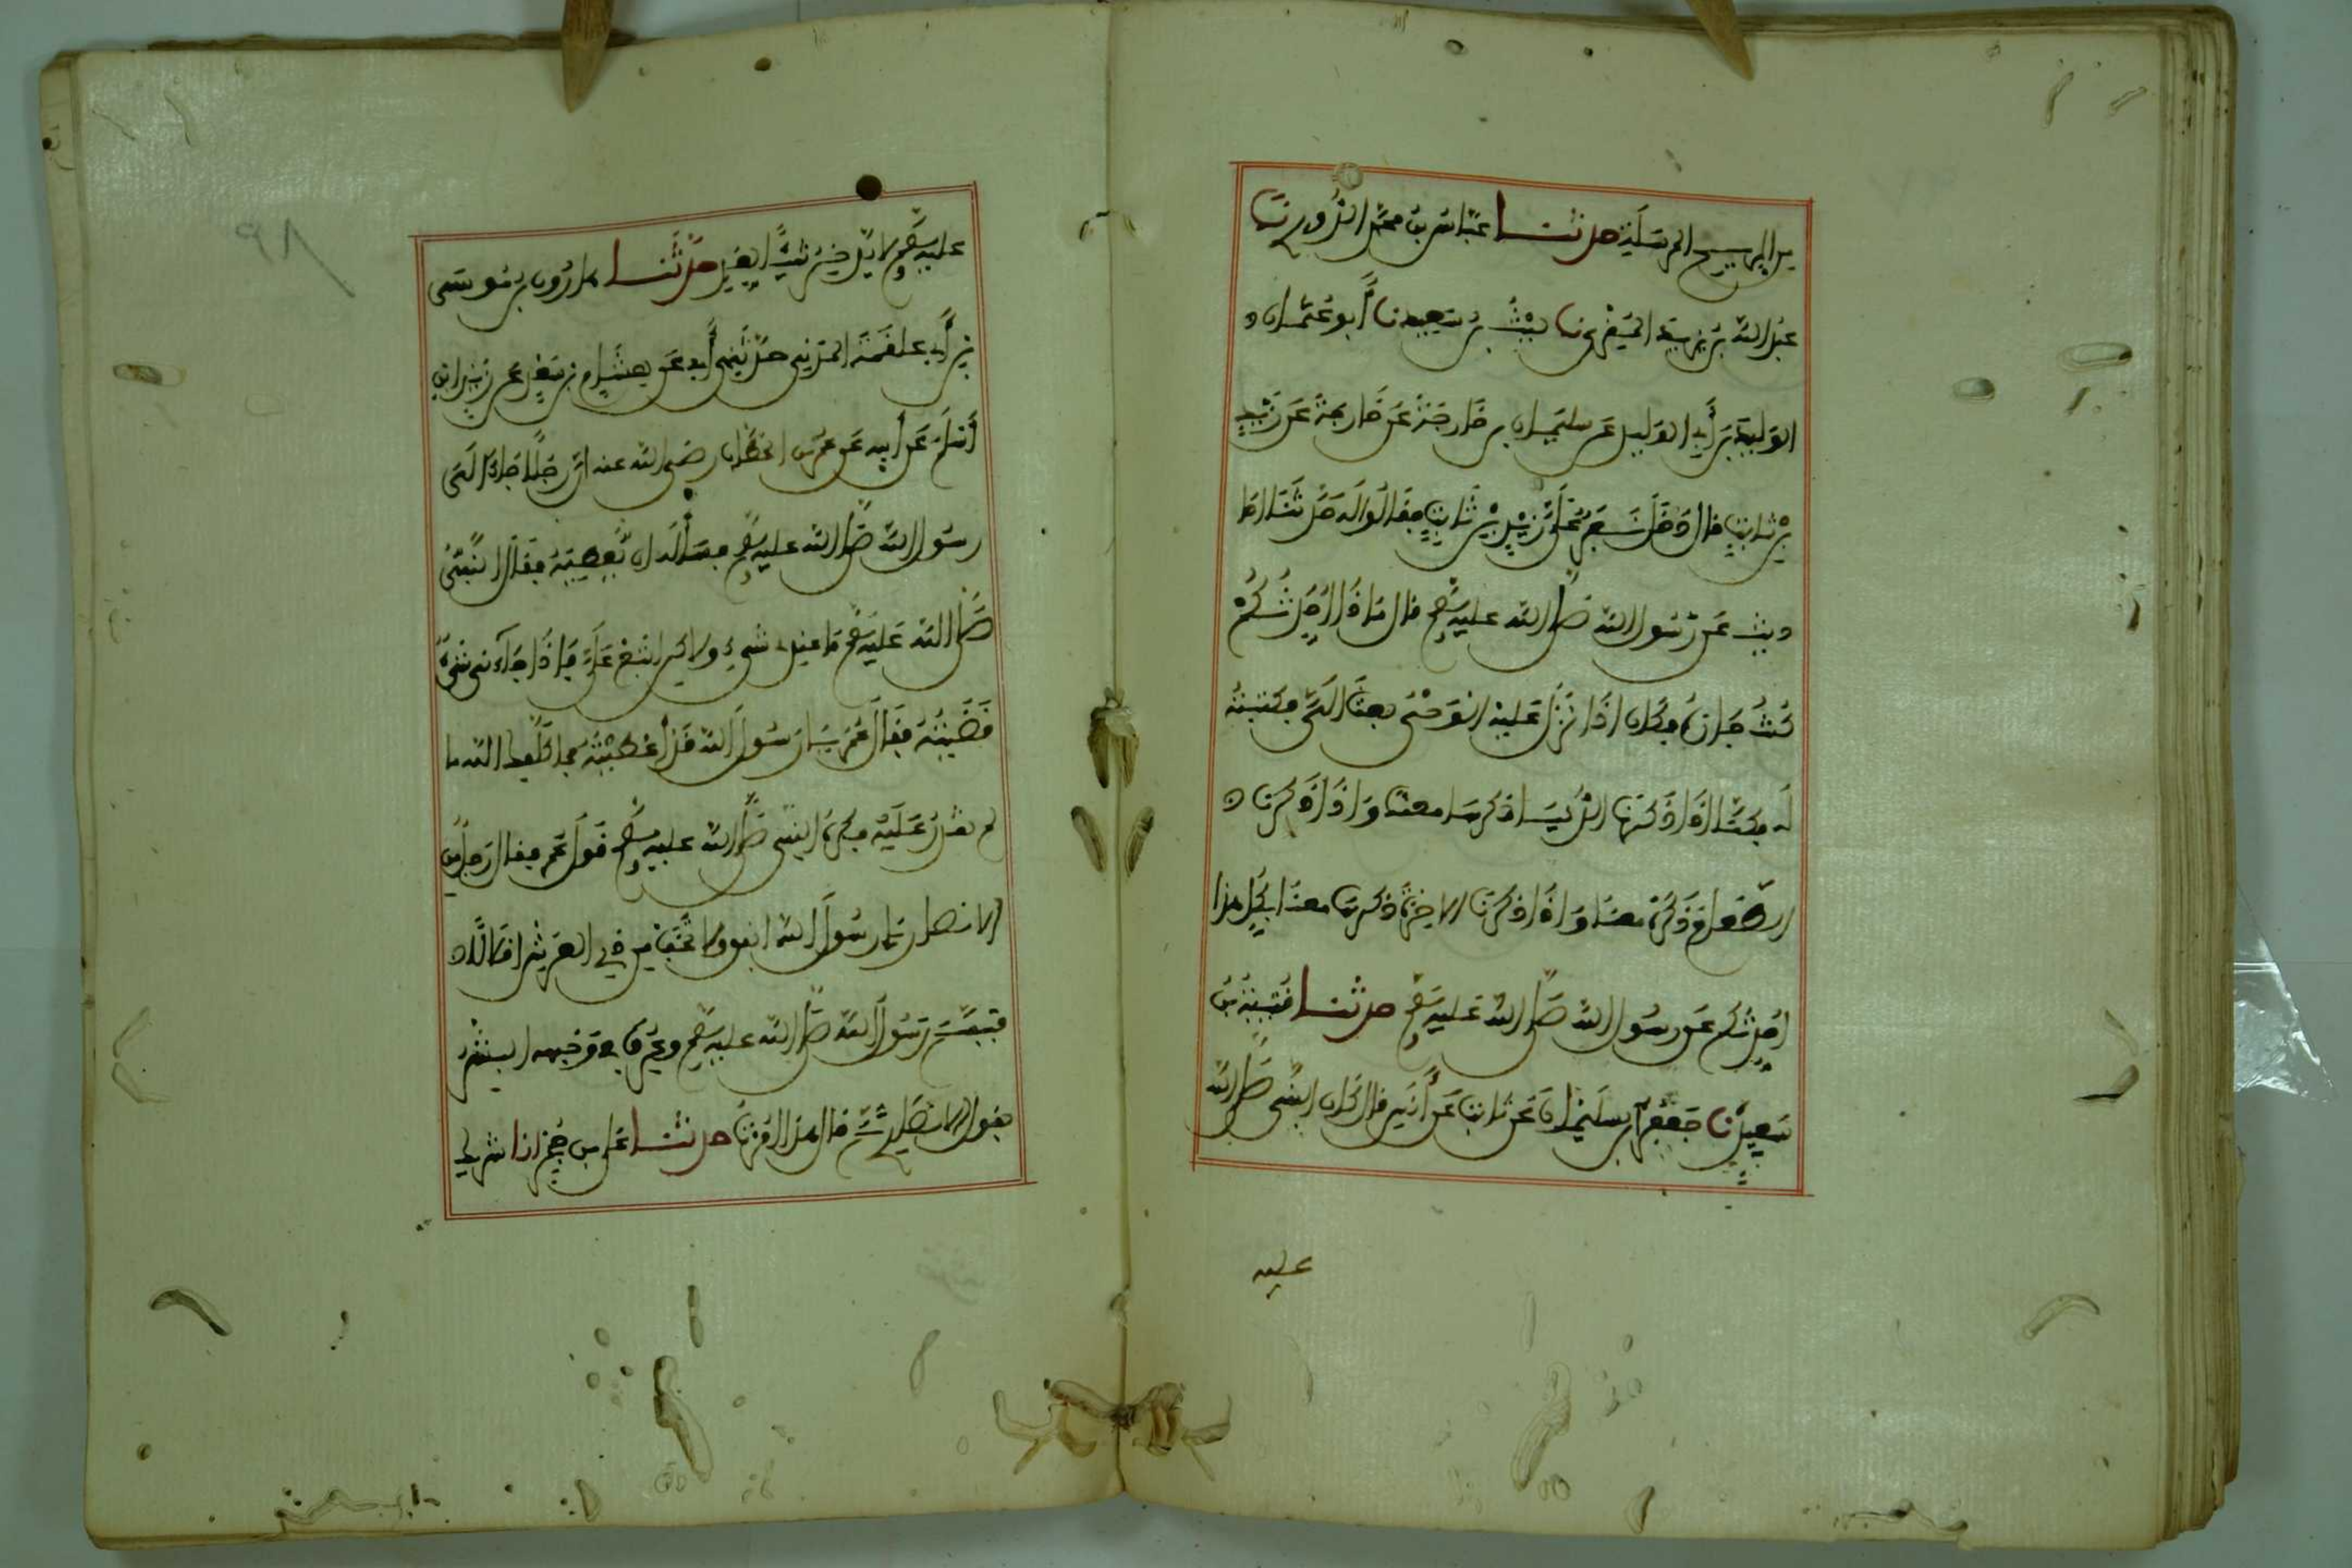 من الريح المرسلة حدثنا عباس بن محمد الدوري نا
عبد الله بن يزيد المقري نا ليث بن سعيد نا أبو عثمان
الوليد بن أبي الوليد عن سليمان بن خارجة عن خارجة عن زيد
بن ثابت قال دخل نفر على زيد بن ثابت فقالوا له حدثنا احا
ديث عن رسول الله صلى الله عليه وسلم قال ماذا احدثكم
كنت جاره فكان إذا نزل عليه الوحي بعث الي فكتبته
له فكنا اذا ذكرنا الدنيا ذكرها معنا وإذا ذكرنا
الطعام ذكره معنا وإذا ذكرنا الاخرة ذكرها معنا بكل هذا
احدثكم عن رسول الله صلى الله عليه وسلم حدثنا قتيبة بن
سعيد نا جعفر بن سليمان عن ثابت عن أنس قال كان النبي صلى الله
عليه
٩٨
عليه وسلم لا يدخر شيئا لغد حدثنا هارون بن موسى
بن أبي علقمة المزني حدثني أبي عن هشام بن سعد عن زيد ابن
أسلم عن أبيه عن عمر بن الخطاب رضي الله عنه ان رجلا جاء الى
رسول الله صلى الله عليه وسلم فسأله ان يعطيه فقال النبي
صلى الله عليه وسلم ما عندي شيء ولاكن ابتع علي فإذا جاءني شيء
قضيته فقال عمر يا رسول الله قد أعطيته فما كلفك الله ما
لم تقدر عليه فكره النبي صلى الله عليه وسلم قول عمر فقال رجل من
الانصار يا رسول الله انفق ولا تخف من ذي العرش اقلالا
فتبسم رسول الله صلى الله عليه وسلم وعرف في وجهه البشر
بقول الانصاري ثم قال بهذا امرت حدثنا علي بن حجر انا شريك